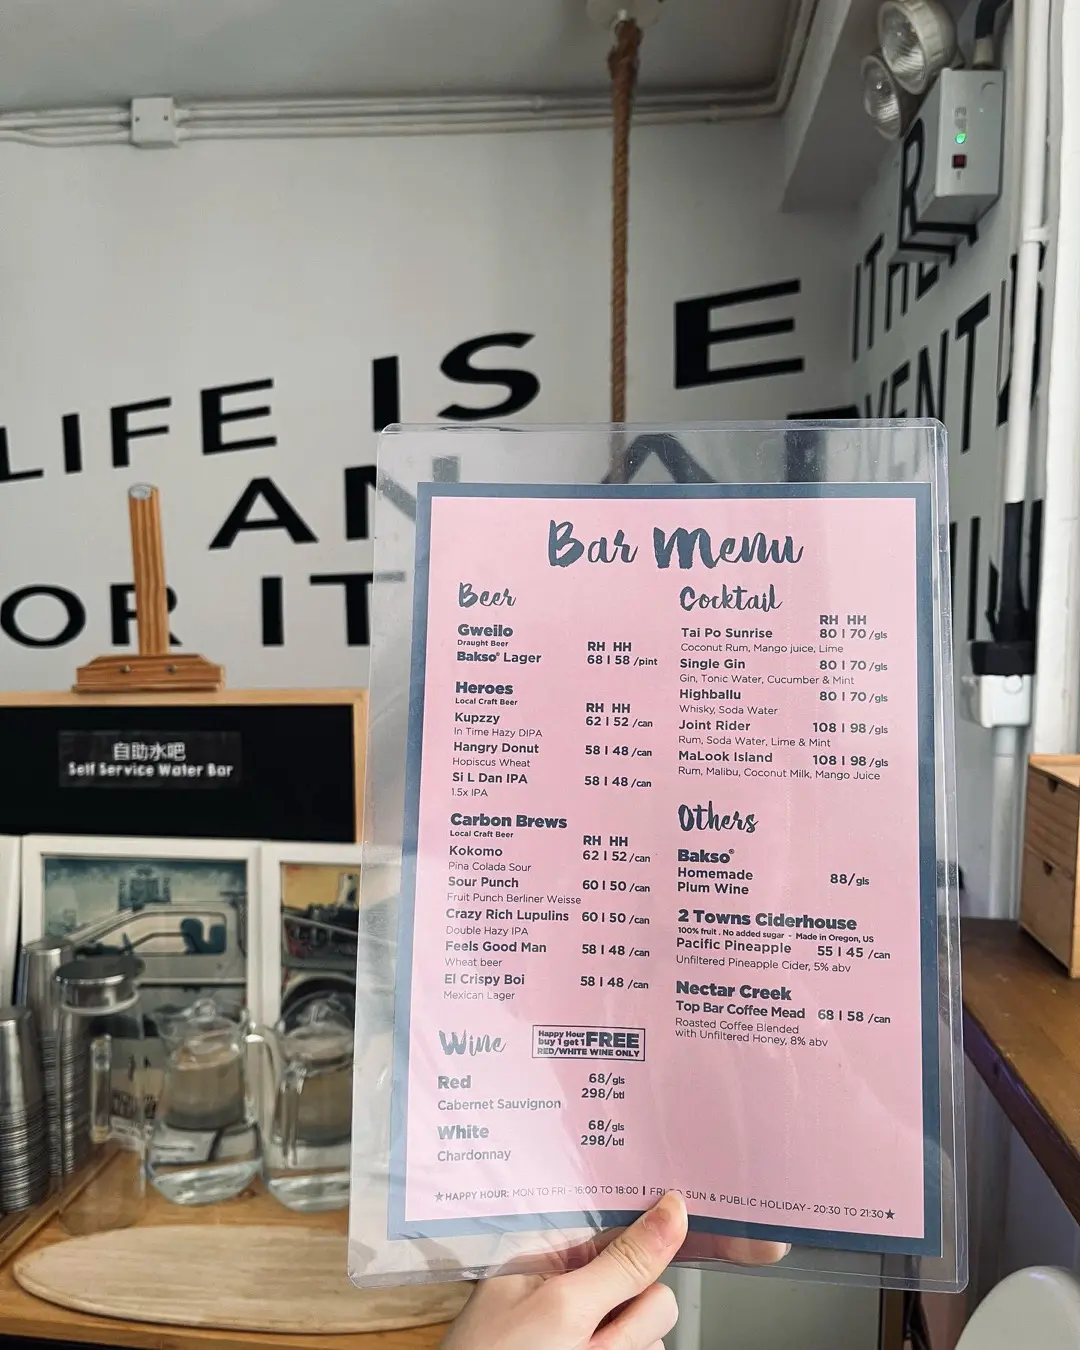 LIFE IS E
AN A
OR IT
R
ITHER
VENTU
自助水吧
Self Service Water Bar
Bar Menu
Beer
Gweilo
Draught Beer
RH HH
Bakso® Lager 68 | 58 /pint
Heroes
Local Craft Beer
RH HH
Kupzzy 62 | 52 /can
In Time Hazy DIPA
Hangry Donut 58 | 48 /can
Hopiscus Wheat
Si L Dan IPA 58 | 48 /can
1.5x IPA
Carbon Brews
Local Craft Beer
RH HH
Kokomo 62 | 52 /can
Pina Colada Sour
Sour Punch 60 | 50 /can
Fruit Punch Berliner Weisse
Crazy Rich Lupulins 60 | 50 /can
Double Hazy IPA
Feels Good Man 58 | 48 /can
Wheat beer
El Crispy Boi 58 | 48 /can
Mexican Lager
Wine
Happy Hour
buy 1 get 1 FREE
RED/WHITE WINE ONLY
Red 68/gls
298/btl
Cabernet Sauvignon
White 68/gls
298/btl
Chardonnay
Cocktail
RH HH
Tai Po Sunrise 80 | 70 /gls
Coconut Rum, Mango juice, Lime
Single Gin 80 | 70 /gls
Gin, Tonic Water, Cucumber & Mint
Highballu 80 | 70 /gls
Whisky, Soda Water
Joint Rider 108 | 98 /gls
Rum, Soda Water, Lime & Mint
MaLook Island 108 | 98 /gls
Rum, Malibu, Coconut Milk, Mango Juice
Others
Bakso®
Homemade
Plum Wine 88/gls
2 Towns Ciderhouse
100% fruit . No added sugar - Made in Oregon, US
Pacific Pineapple 55 | 45 /can
Unfiltered Pineapple Cider, 5% abv
Nectar Creek
Top Bar Coffee Mead 68 | 58 /can
Roasted Coffee Blended
with Unfiltered Honey, 8% abv
★HAPPY HOUR: MON TO FRI - 16:00 TO 18:00 | FRI SUN & PUBLIC HOLIDAY - 20:30 TO 21:30★